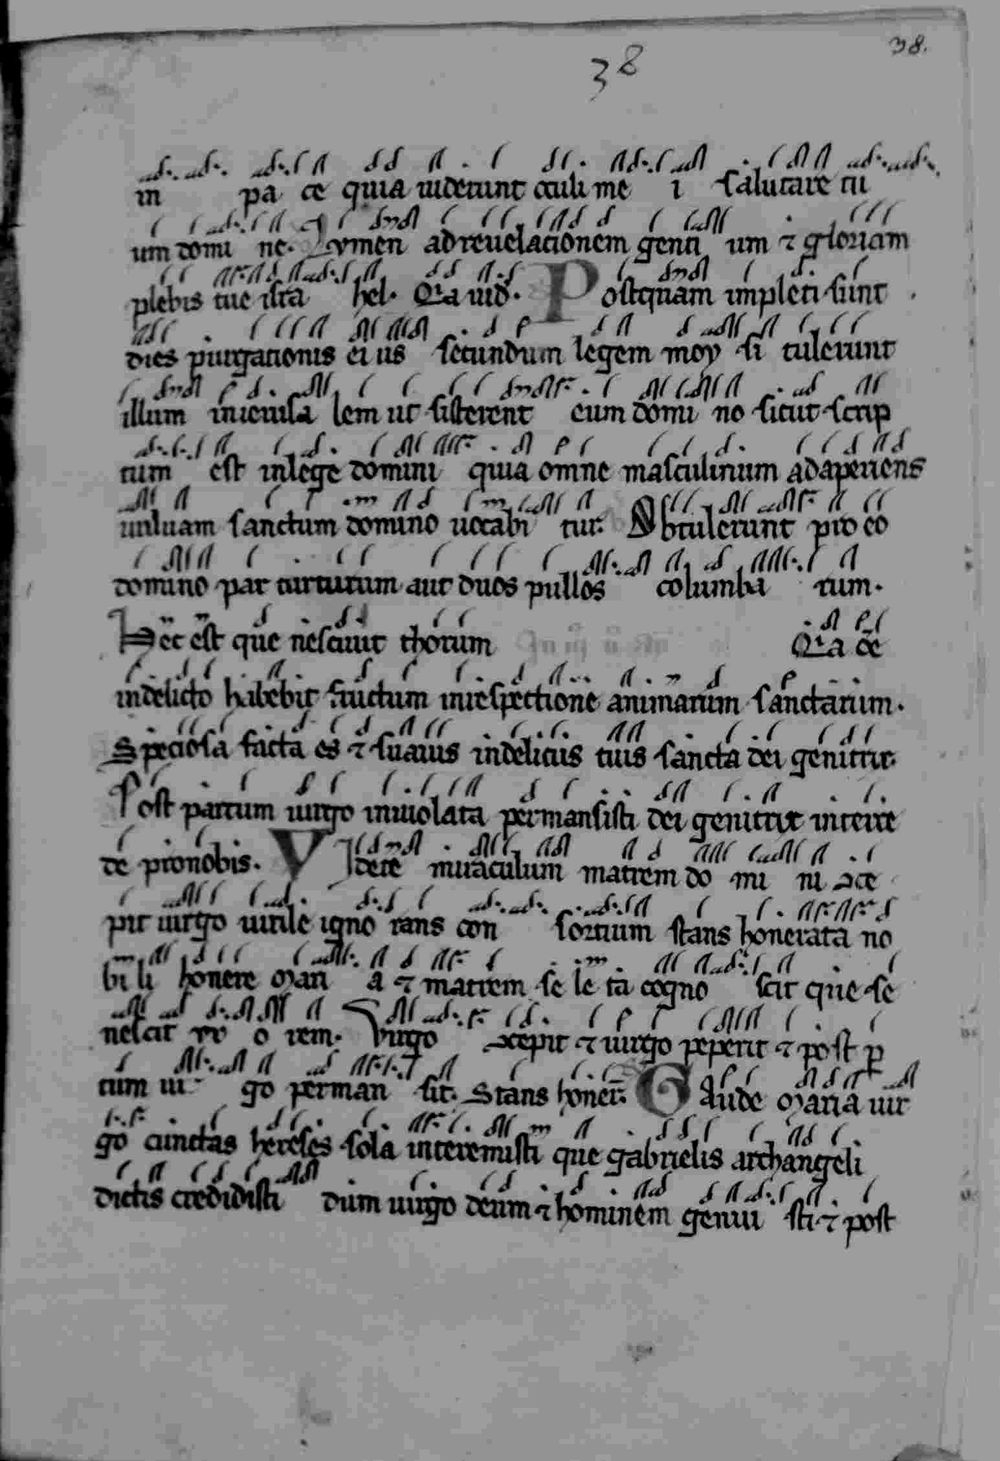 38.
38
in pa ce quia uiderunt oculi me i salutare tu
um domi ne. Lvmen ad reuelationem genti um ⁊ gloriam
plebis tue isra hel. Q̇a uid̄. Postquam impleti sunt
dies purgationis ei us secundum legem moy si tulerunt
illum inierusa lem ut sisterent eum domi no sicut scrip
tum est inlege domini quia omne masculinum adaperiens
uuluam sanctum domino uocabi tur. Obtulerunt pro eo
domino par turturum aut duos pullos columba rum.
Hec est que nesciuit thorum Q̇a ce
indelicto habebit fructum inrespectione animarum sanctarum.
Speciosa facta es ⁊ suauis indeliciis tuis sancta dei genitrix.
Post partum uirgo inuiolata permansisti dei genitrix interce
de pronobis. Videre miraculum matrem do mi ni ce
pit uirgo uirile igno rans con sortium stans honerata no
bi li honere mari a ⁊ matrem se le ta cogno scit que se
nescit ux o rem. Virgo cepit ⁊ uirgo peperit ⁊ post p
tum ui go perman sit. Stans honer. Gaude maria uir
go cunctas hereses sola interemisti que gabrielis archangeli
dictis credidisti dum uirgo deum ⁊ hominem genui sti ⁊ post